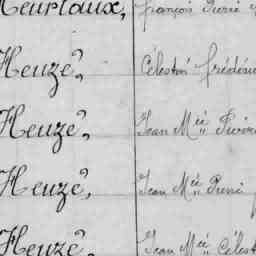 Meurtaux, François Pierre
Heuzé, Célestin Frédéric
Heuzé, Jean Mie Pierre
Heuzé, Jean Mie Pierre
Heuzé, Jean Mie Célest